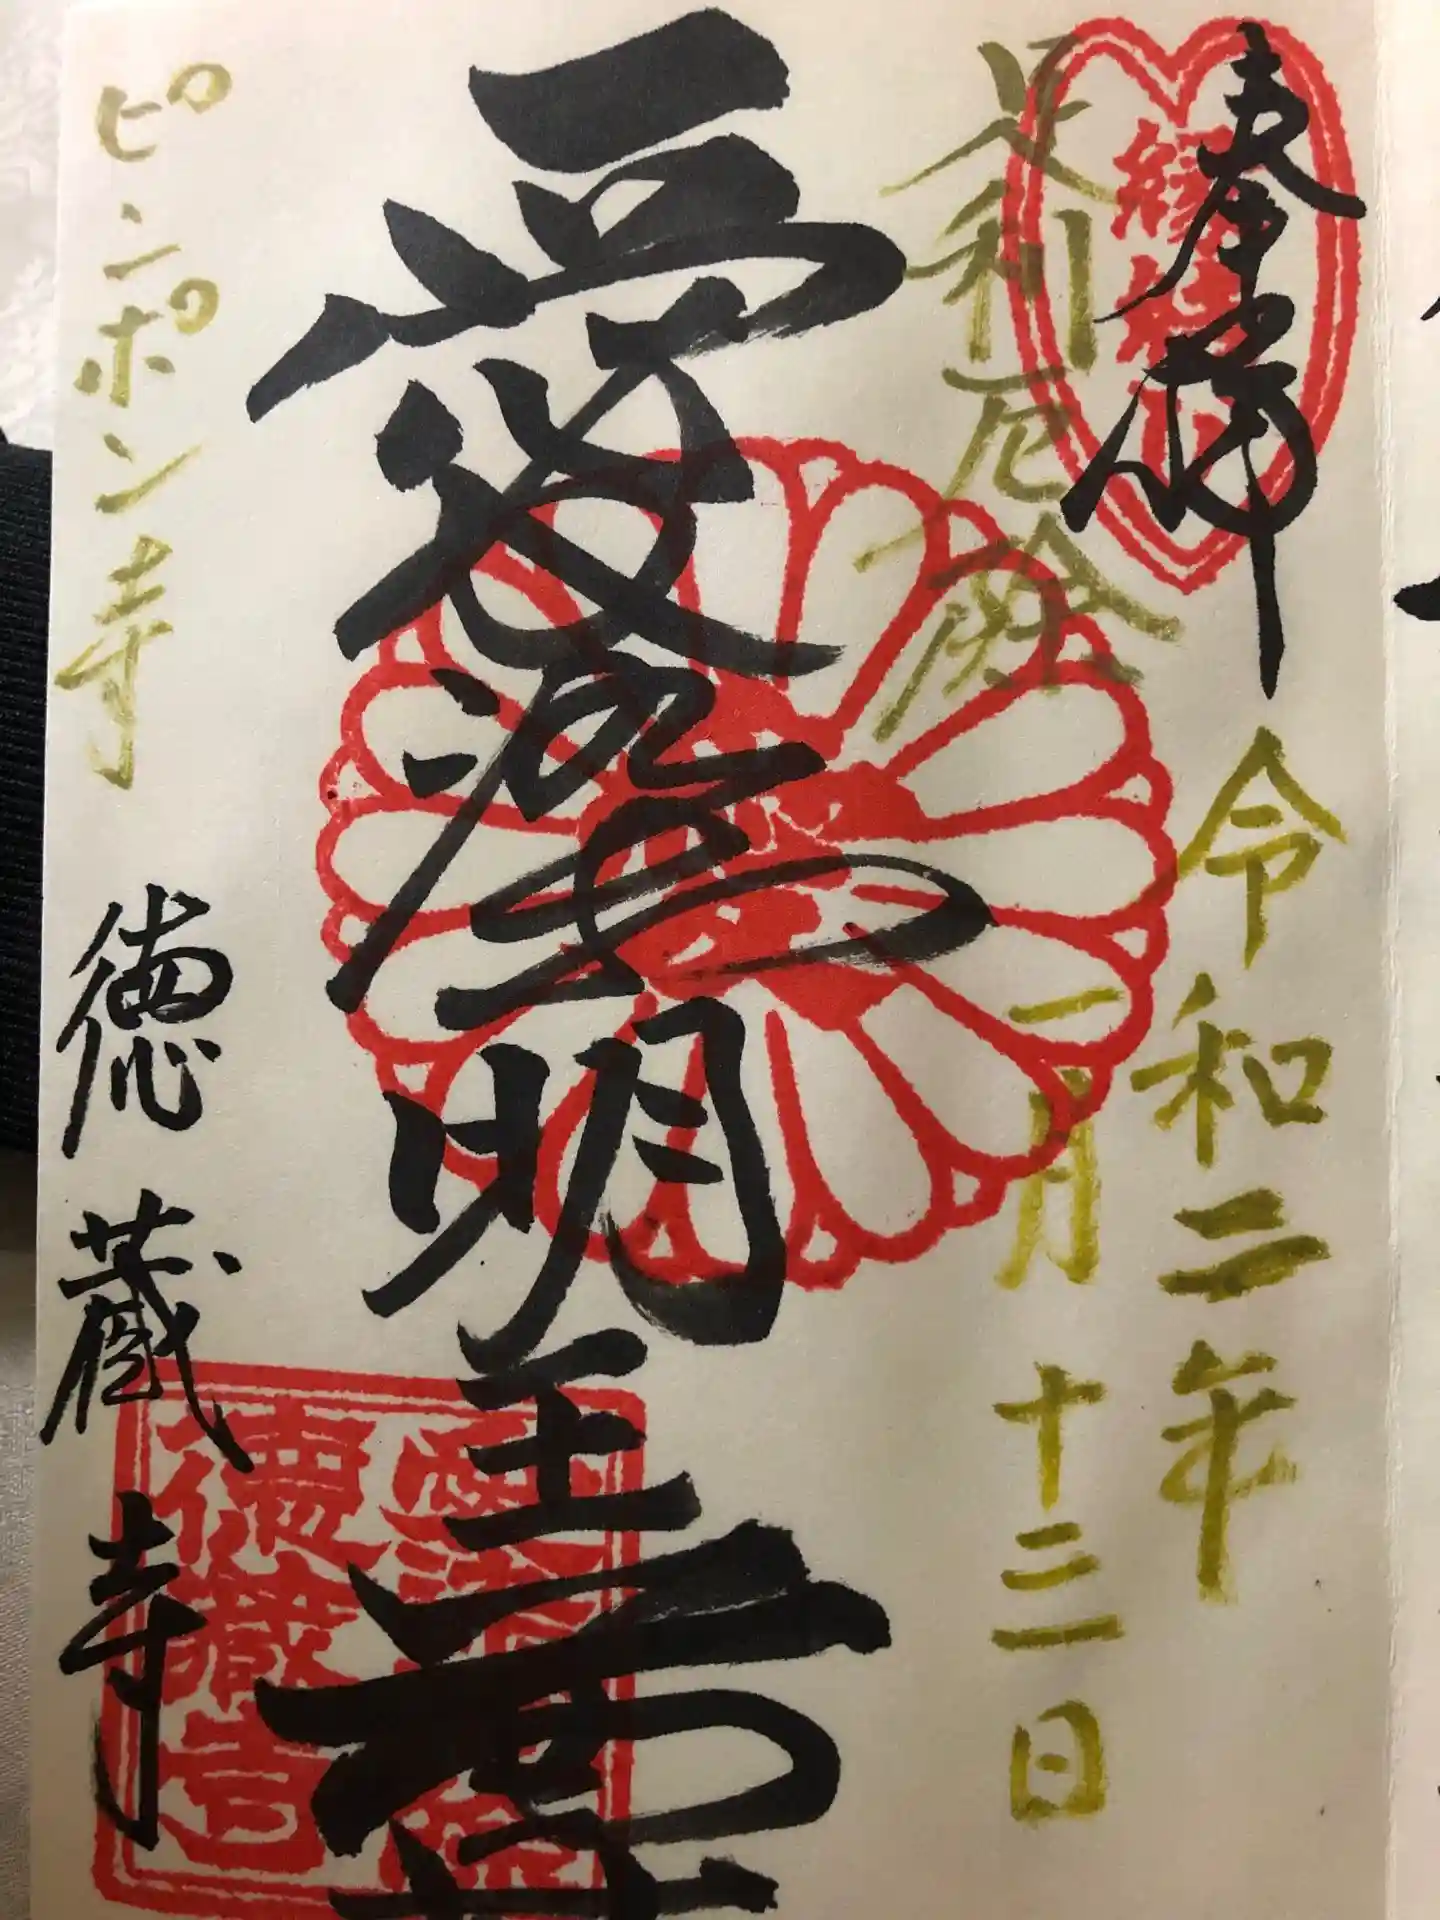 奉拝
縁結び
令和二年
足利厄除
二月十三日
愛染明王
ピンポン寺
徳蔵寺
徳蔵寺